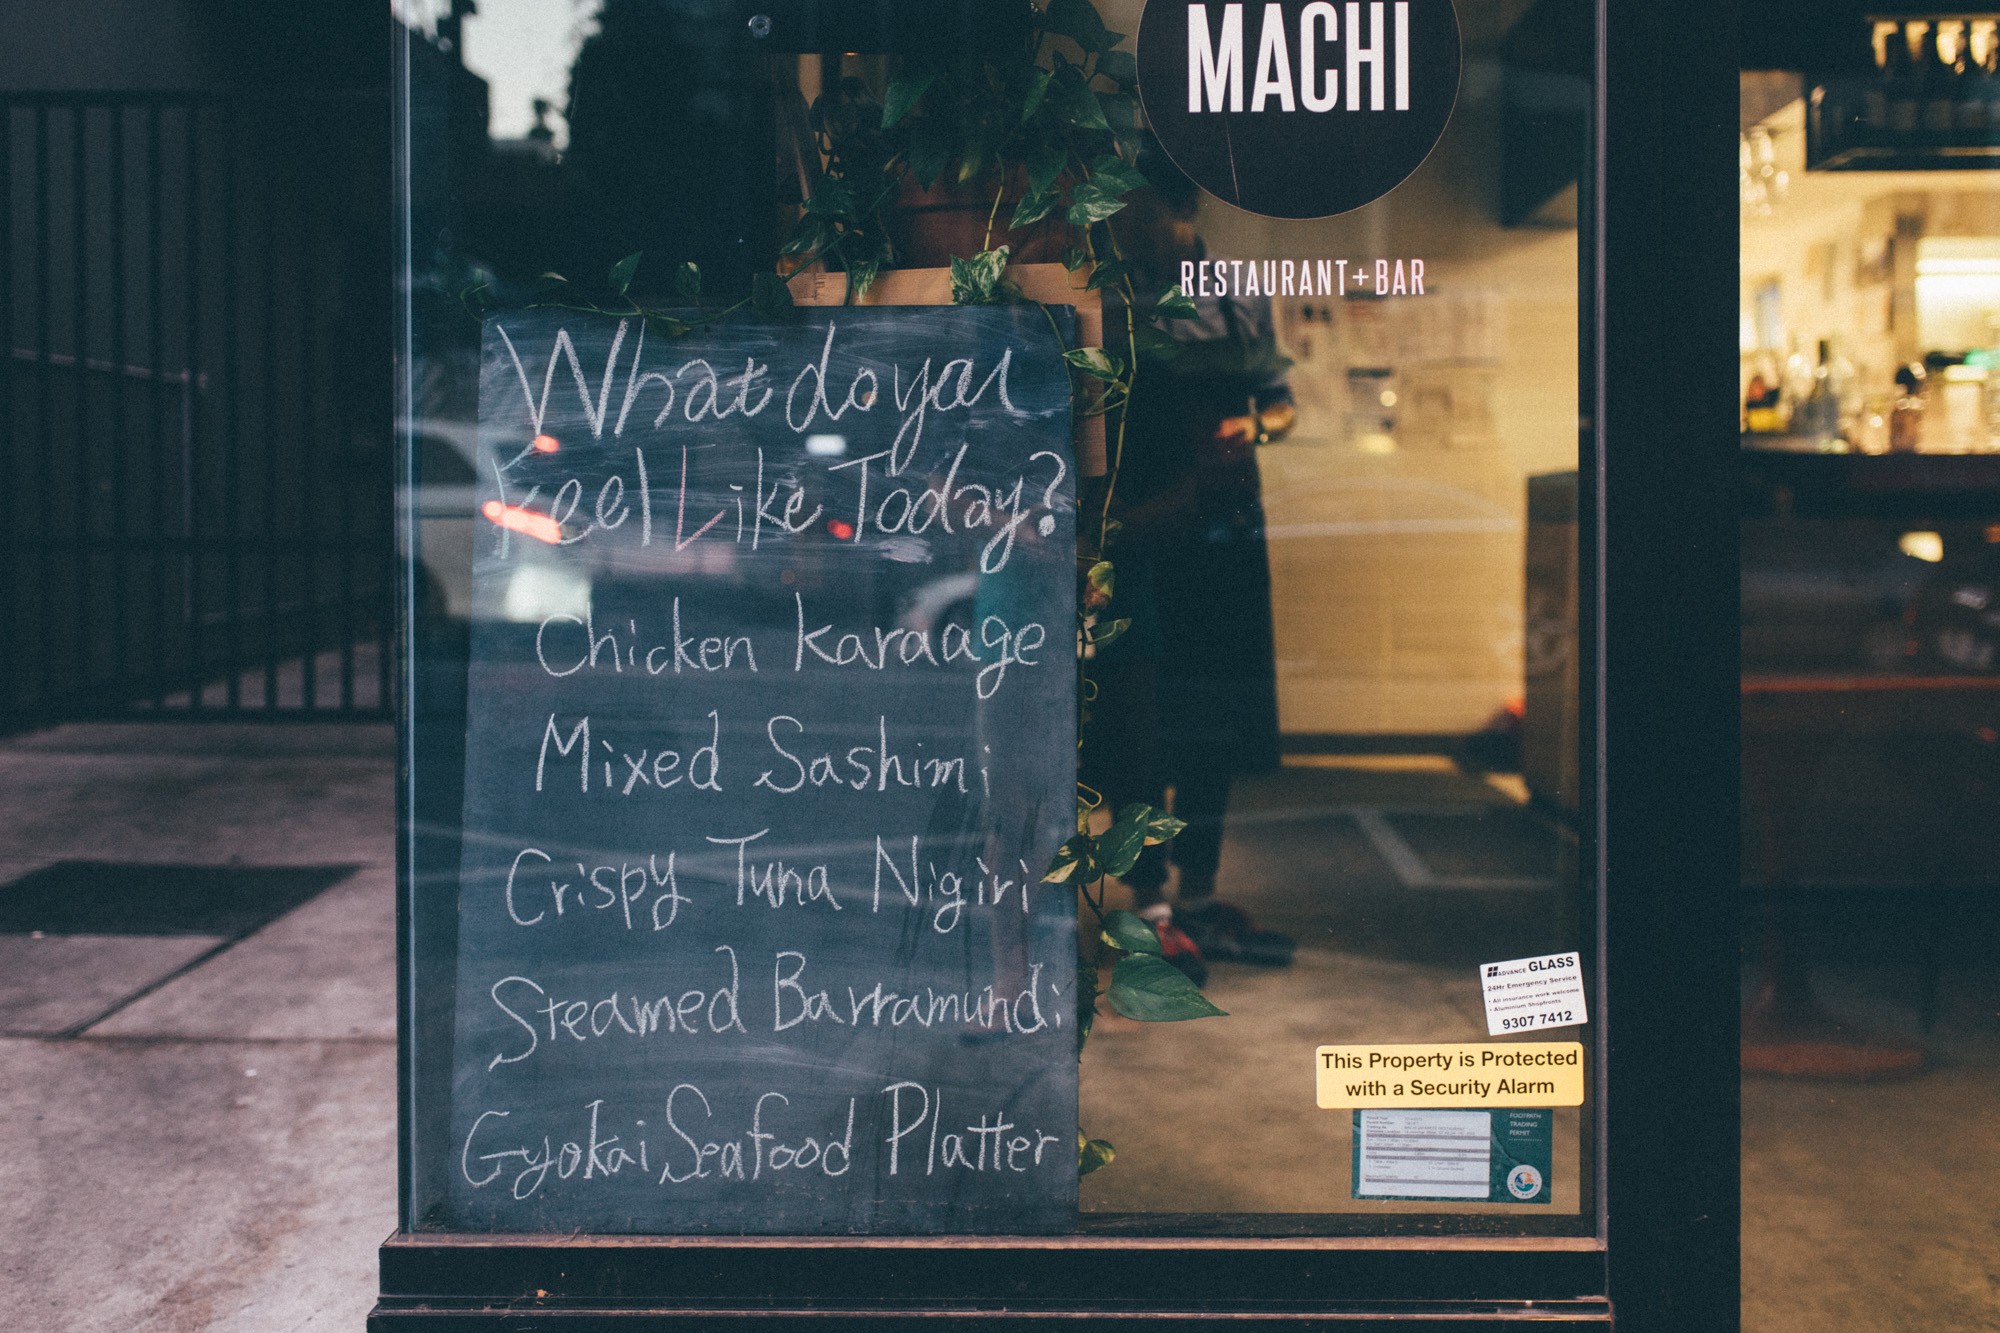 MACHI
RESTAURANT+BAR
What do you
Feel Like Today?
Chicken Karaage
Mixed Sashimi
Crispy Tuna Nigiri
Steamed Barramundi
Gyokai Seafood Platter
ADVANCE GLASS
24Hr Emergency Service
• All insurance work welcome
• Aluminium Shopfronts
9307 7412
This Property is Protected
with a Security Alarm
FOOTPATH
TRADING
PERMIT